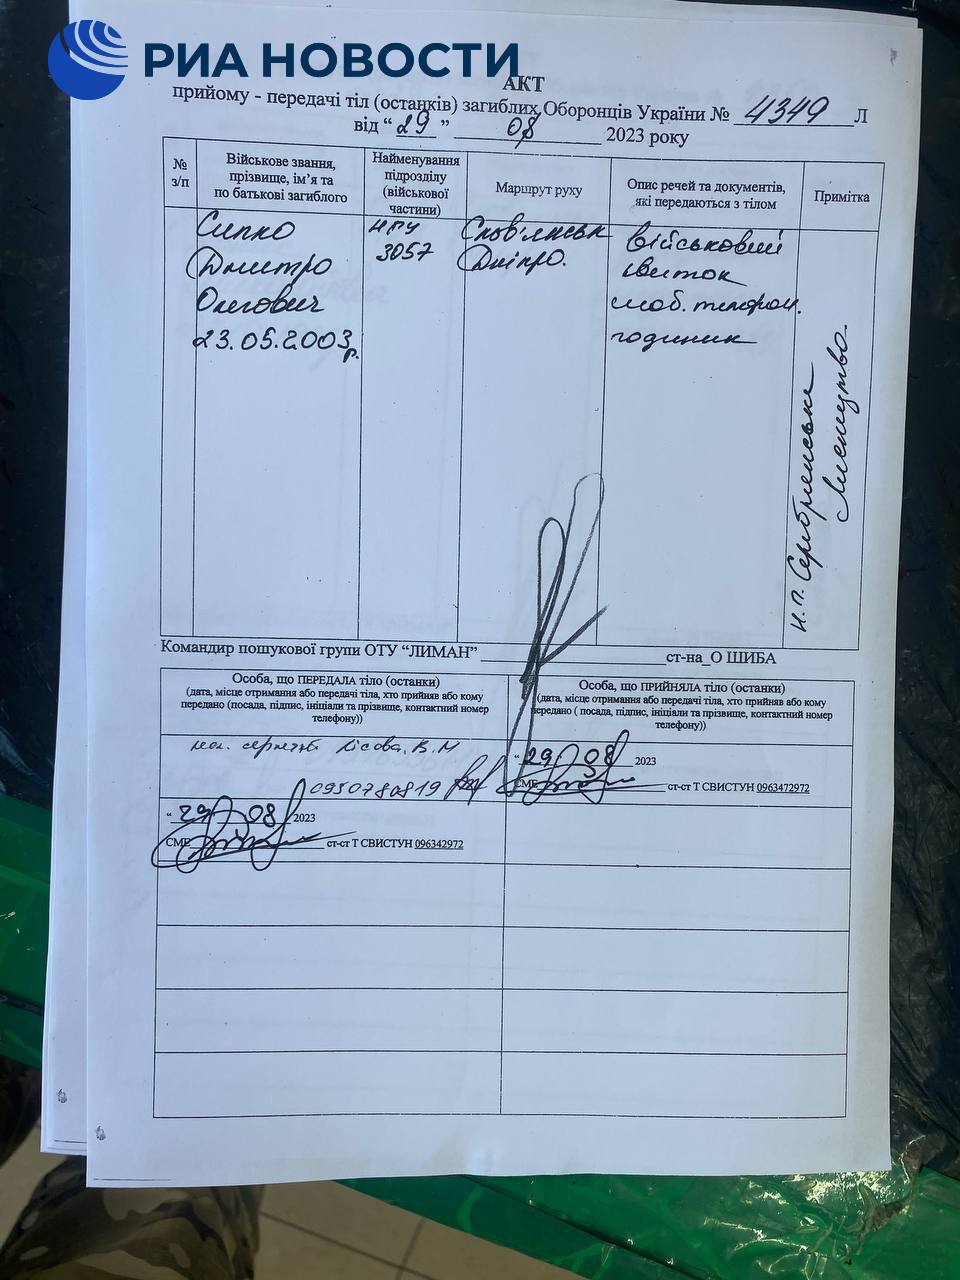 РИА НОВОСТИ
АКТ
прийому - передачі тіл (останків) загиблих Оборонців України № 4349 Л
від “ 29 ” 08 2023 року
№ з/п
Військове звання, прізвище, ім’я та по батькові загиблого
Найменування підрозділу (військової частини)
Маршрут руху
Опис речей та документів, які передаються з тілом
Примітка
Сипко
Дмитро
Олегович
23.05.2003р.
НГУ
3057
Слов'янськ
Дніпро.
військовий
квиток
моб. телефон.
годиник
н.п. Серебрянське
лисництво.
Командир пошукової групи ОТУ “ЛИМАН” ст-на_О ШИБА
Особа, що ПЕРЕДАЛА тіло (останки)
(дата, місце отримання або передачі тіла, хто прийняв або кому
передано (посада, підпис, ініціали та прізвище, контактний номер
телефону))
Особа, що ПРИЙНЯЛА тіло (останки)
(дата, місце отримання або передачі тіла, хто прийняв або кому
передано ( посада, підпис, ініціали та прізвище, контактний номер
телефону))
сержант Лісова В.М
0950780819
“ 29 08 2023
СМЕ ст-ст Т СВИСТУН 0963472972
“ 29 08 2023
СМЕ ст-ст Т СВИСТУН 096342972